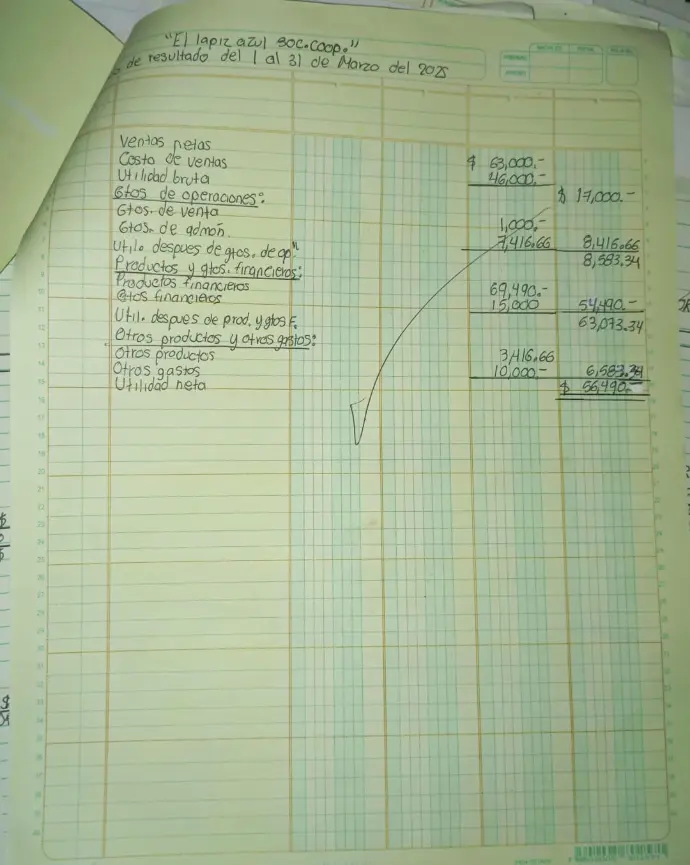 "El lapiz azul Soc. Coop."
de resultado del 1 al 31 de Marzo del 2025
Ventas netas $ 63,000.-
Costo de ventas 46,000.-
Utilidad bruta $ 17,000.-
Gtos de operaciones:
Gtos. de venta 1,000.-
Gtos. de admón. 7,416.66 8,416.66
Util. despues de gtos. de op". 8,583.34
Productos y gtos. financieros:
Productos financieros 69,490.-
Gtos financieros 15,000 54,490.-
Util. despues de prod. y gtos F. 63,073.34
Otros productos y otros gastos:
Otros productos 3,416.66
Otros gastos 10,000.- 6,583.34
Utilidad neta $ 56,490.-